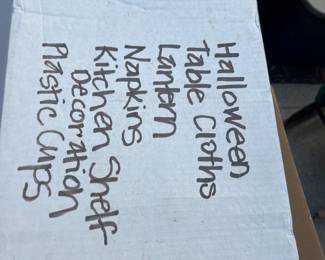 Halloween
Table Cloths
Lantern
Napkins
Kitchen Shelf
Decoration
Plastic Cups